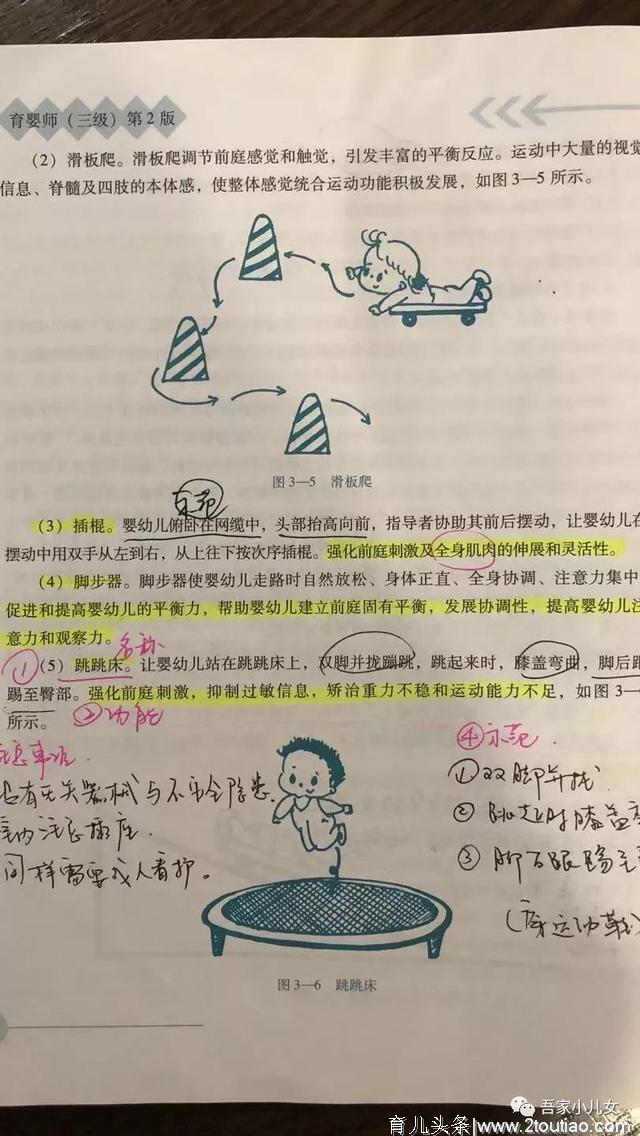 育婴师（三级）第2版
（2）滑板爬。滑板爬调节前庭感觉和触觉，引发丰富的平衡反应。运动中大量的视觉
信息、脊髓及四肢的本体感，使整体感觉统合运动功能积极发展，如图3—5所示。
图3—5 滑板爬
示范
（3）插棍。婴幼儿俯卧在网缆中，头部抬高向前，指导者协助其前后摆动，让婴幼儿在
摆动中用双手从左到右，从上往下按次序插棍。强化前庭刺激及全身肌肉的伸展和灵活性。
（4）脚步器。脚步器使婴幼儿走路时自然放松、身体正直、全身协调、注意力集中
促进和提高婴幼儿的平衡力，帮助婴幼儿建立前庭固有平衡，发展协调性，提高婴幼儿注
意力和观察力。
名称
①（5）跳跳床。让婴幼儿站在跳跳床上，双脚并拢蹦跳，跳起来时，膝盖弯曲，脚后跟
踢至臀部。强化前庭刺激，抑制过敏信息，矫治重力不稳和运动能力不足，如图3—6
所示。
②功能
意事项.
有无失器械与不安全隐患.
注意插座.
同样需要成人看护。
④示范.
①双脚并拢
②跳起时膝盖
③脚后跟踢至
图3—6 跳跳床
吾家小儿女
育儿头条 www.2toutiao.com